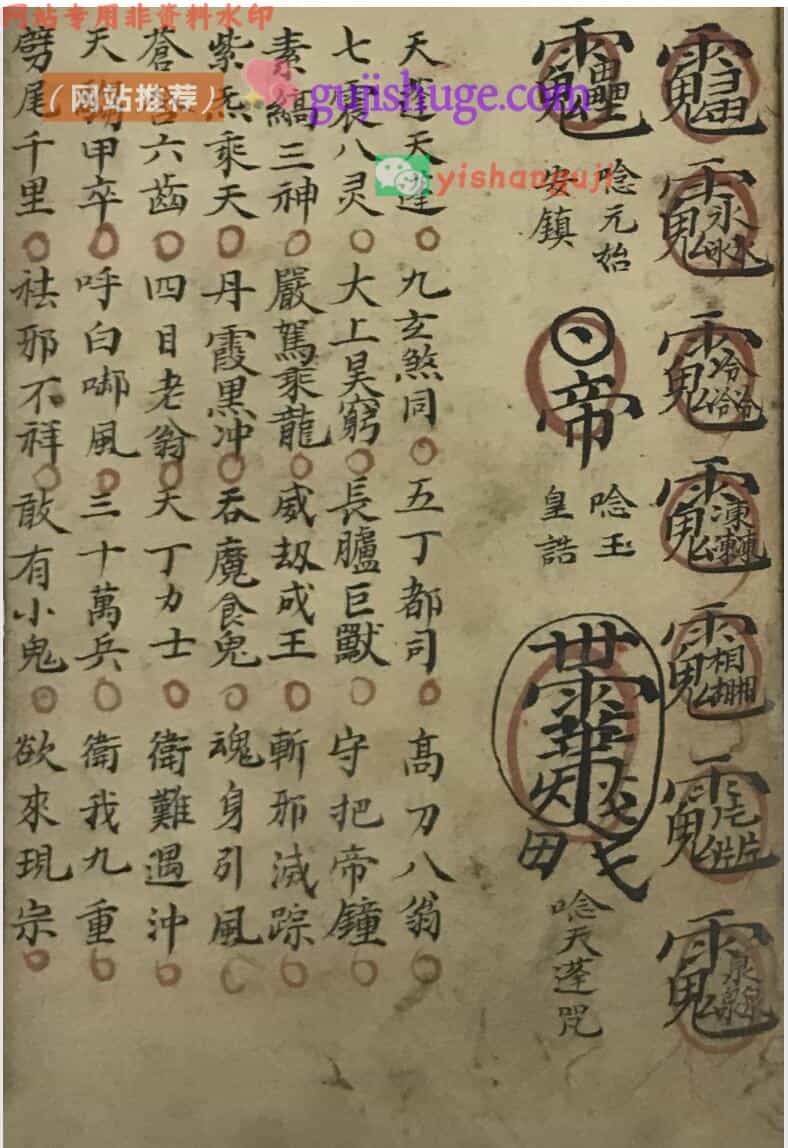 网站专用非资料水印
（网站推荐）
gujishuge.com
yishanguji
唸元始
安鎮
帝
唸玉
皇誥
唸天蓬咒
天蓬天蓬○九玄煞同○五丁都司○高刀八翁○
七震八灵○大上昊穹○長臚巨獸○守把帝鐘○
素縞三神○嚴駕乘龍○威劫成王○斬邪滅踪○
紫炁乘天○丹霞黒冲○吞魔食鬼○魂身引風○
蒼舌六齒○四目老翁○天丁力士○衛難遇沖○
天甲卒○呼白啣風○三十萬兵○衛我九重○
劈尾千里○祛邪不祥○敢有小鬼○欲來現宗○